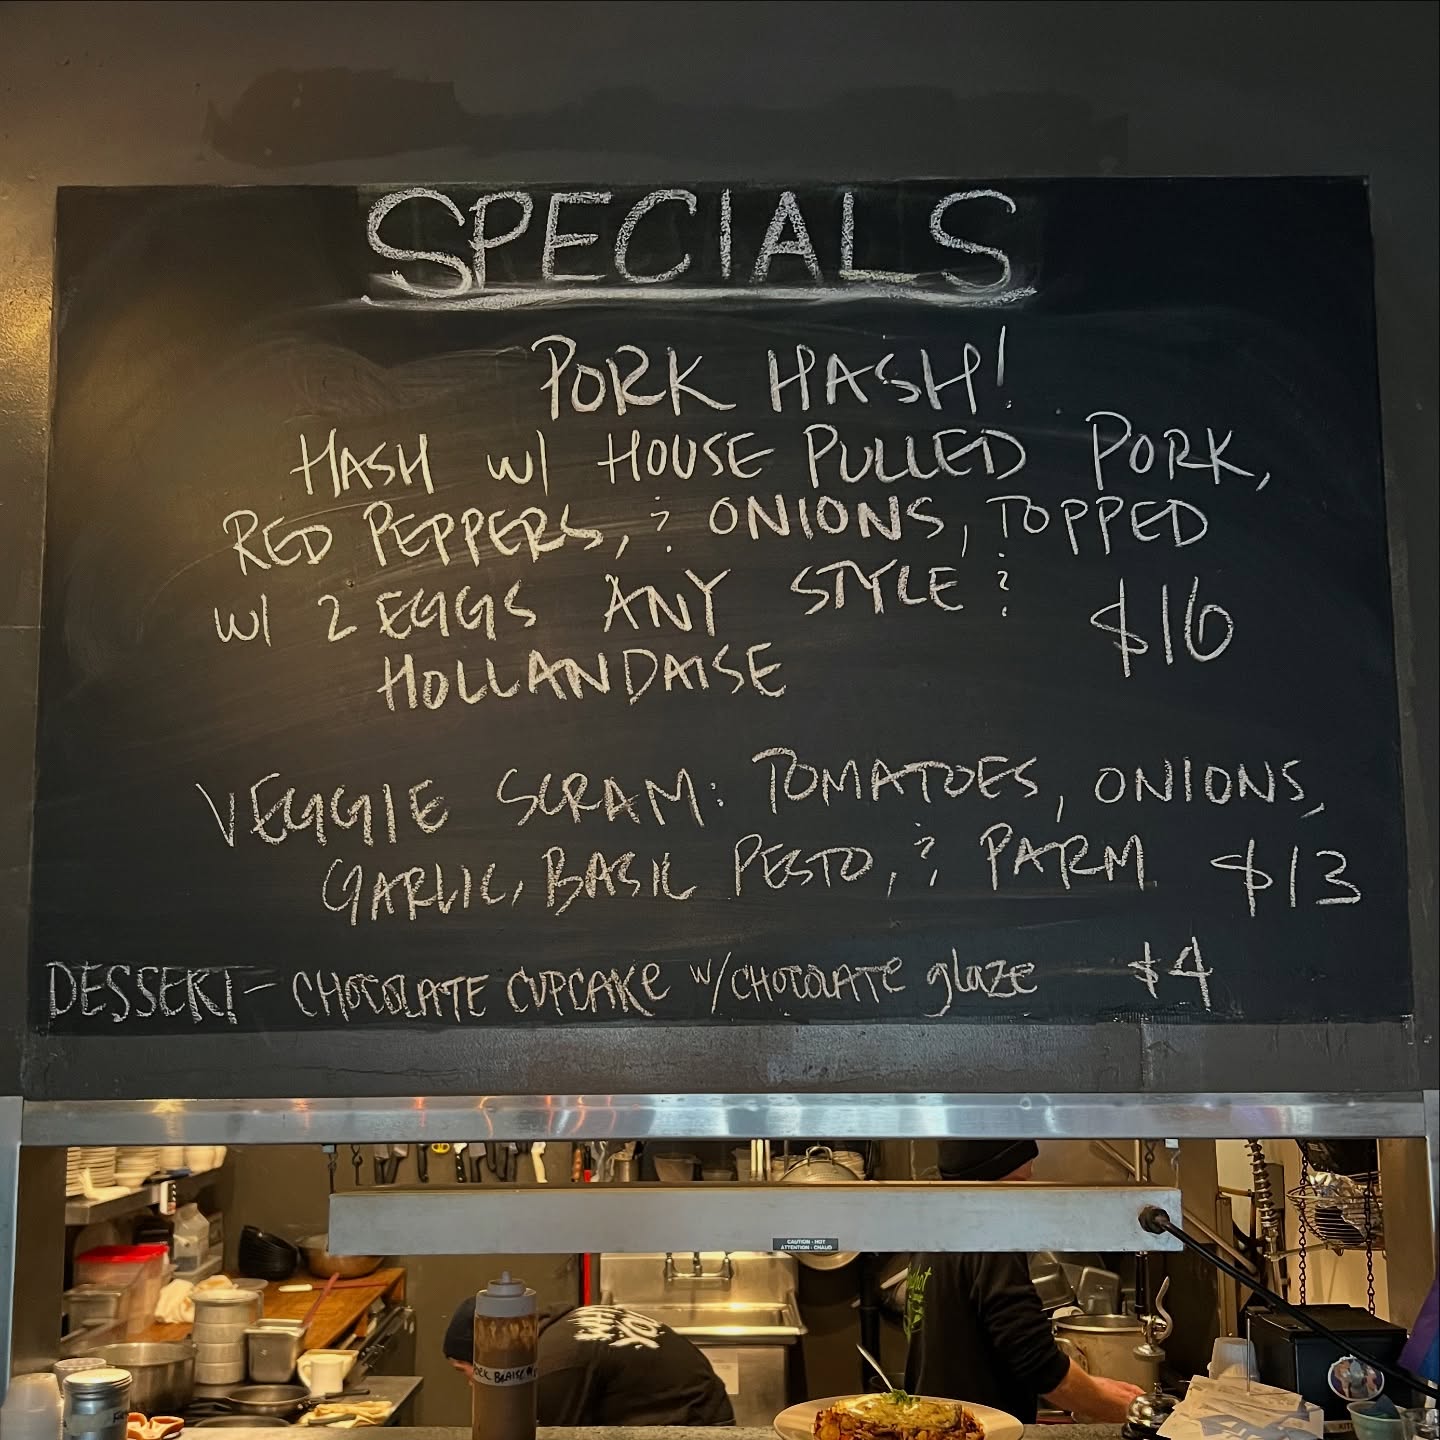 SPECIALS
PORK HASH!
HASH w/ HOUSE PULLED PORK,
RED PEPPERS, & ONIONS, TOPPED
w/ 2 EGGS ANY STYLE &
HOLLANDAISE $16
VEGGIE SCRAM: TOMATOES, ONIONS,
GARLIC, BASIL PESTO, & PARM $13
DESSERT - CHOCOLATE CUPCAKE w/ CHOCOLATE glaze $4
CAUTION - HOT
ATTENTION - CHAUD